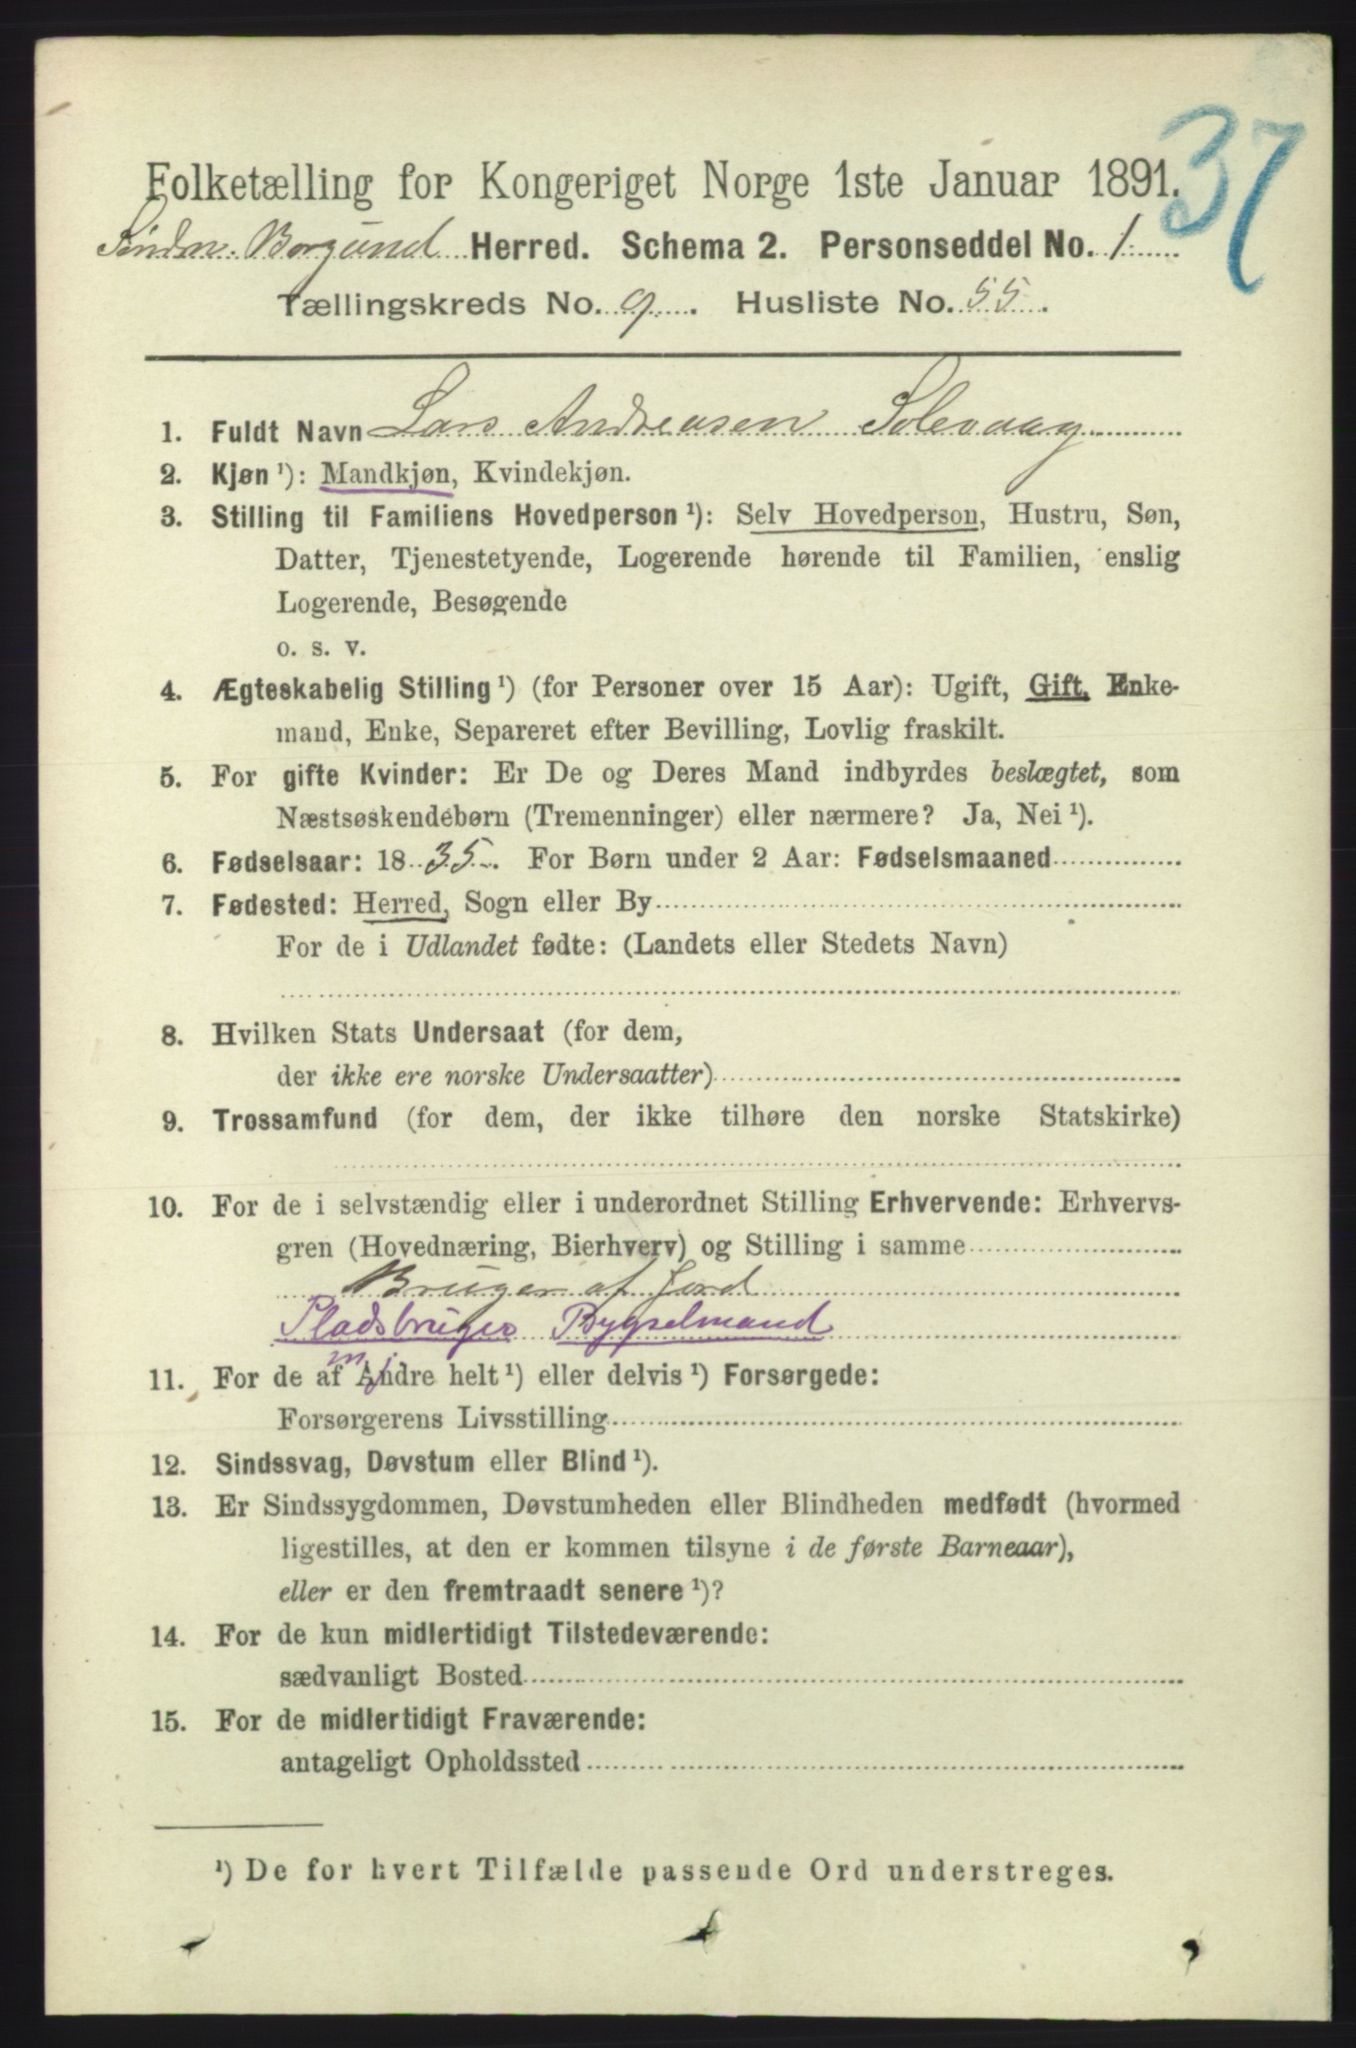 37
Folketælling for Kongeriget Norge 1ste Januar 1891.
Søndm. Borgund Herred. Schema 2. Personseddel No. 1
Tællingskreds No. 9. Husliste No. 55.
1. Fuldt Navn Lars Andreasen Solevaag
2. Kjøn ¹): Mandkjøn, Kvindekjøn.
3. Stilling til Familiens Hovedperson ¹): Selv Hovedperson, Hustru, Søn,
Datter, Tjenestetyende, Logerende hørende til Familien, enslig
Logerende, Besøgende
o. s. v.
4. Ægteskabelig Stilling ¹) (for Personer over 15 Aar): Ugift, Gift, Enke-
mand, Enke, Separeret efter Bevilling, Lovlig fraskilt.
5. For gifte Kvinder: Er De og Deres Mand indbyrdes beslægtet, som
Næstsøskendebørn (Tremenninger) eller nærmere? Ja, Nei ¹).
6. Fødselsaar: 1835. For Børn under 2 Aar: Fødselsmaaned
7. Fødested: Herred, Sogn eller By
For de i Udlandet fødte: (Landets eller Stedets Navn)
8. Hvilken Stats Undersaat (for dem,
der ikke ere norske Undersaatter)
9. Trossamfund (for dem, der ikke tilhøre den norske Statskirke)
10. For de i selvstændig eller i underordnet Stilling Erhvervende: Erhvervs-
gren (Hovednæring, Bierhverv) og Stilling i samme
Bruger af Jord
Pladsbruger Bygselmand
m j
11. For de af Andre helt ¹) eller delvis ¹) Forsørgede:
Forsørgerens Livsstilling
12. Sindssvag, Døvstum eller Blind ¹).
13. Er Sindssygdommen, Døvstumheden eller Blindheden medfødt (hvormed
ligestilles, at den er kommen tilsyne i de første Barneaar),
eller er den fremtraadt senere ¹)?
14. For de kun midlertidigt Tilstedeværende:
sædvanligt Bosted
15. For de midlertidigt Fraværende:
antageligt Opholdssted
¹) De for hvert Tilfælde passende Ord understreges.